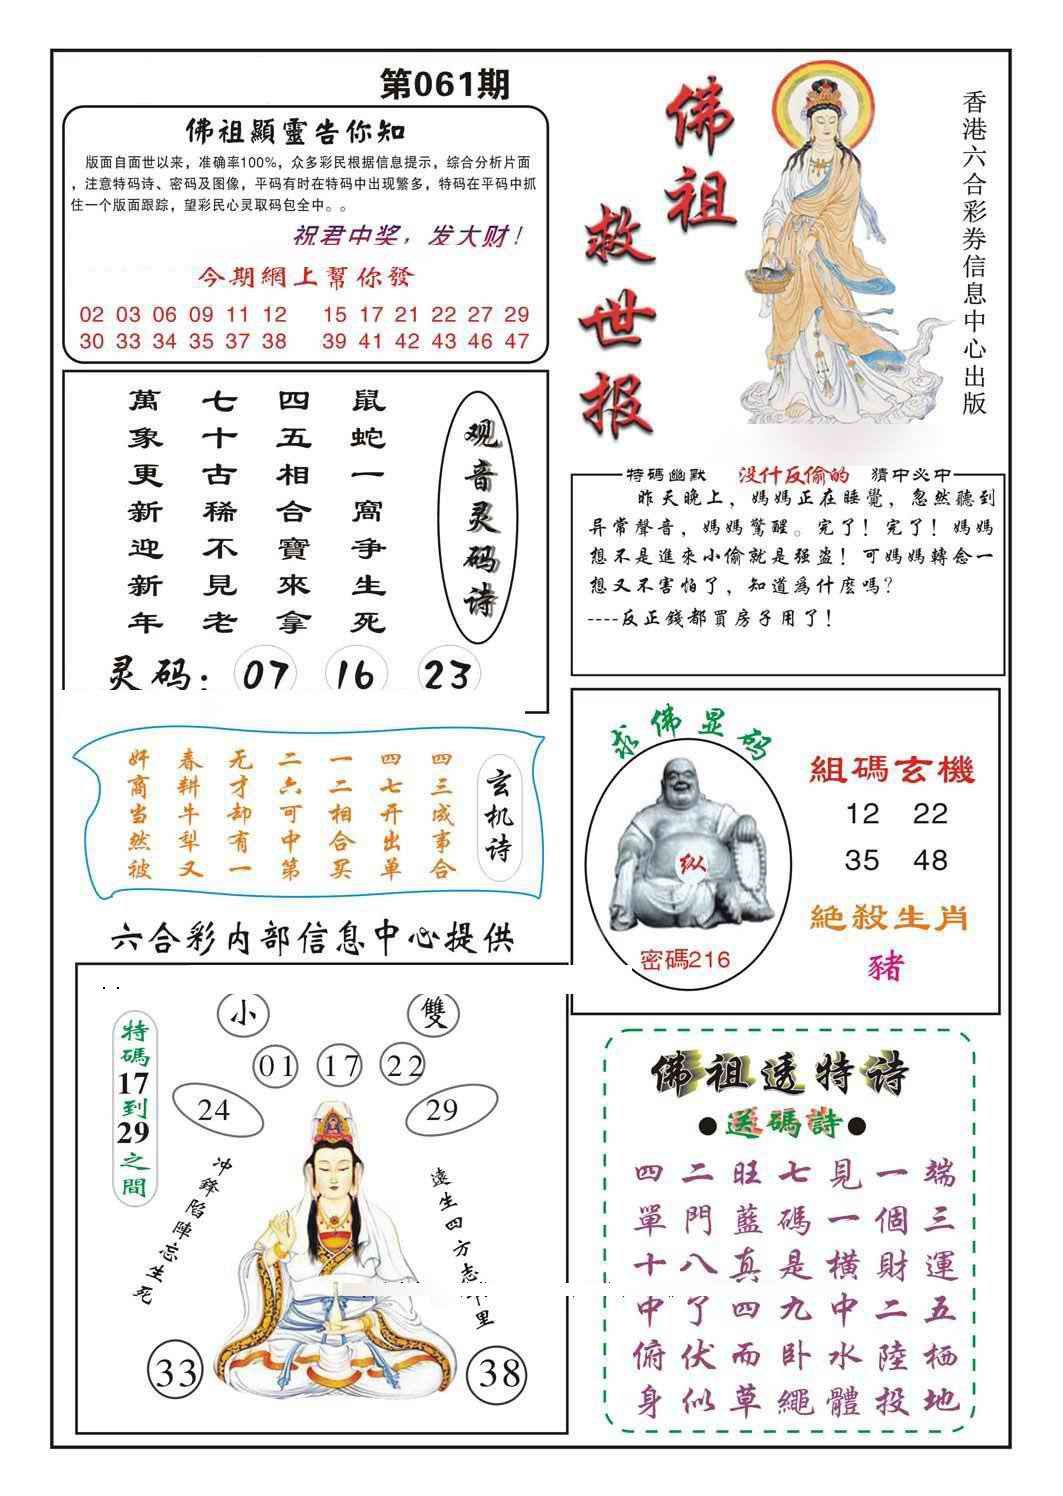 第061期
佛祖顯靈告你知
版面自面世以来，准确率100%，众多彩民根据信息提示，综合分析片面
，注意特码诗、密码及图像，平码有时在特码中出现繁多，特码在平码中抓
住一个版面跟踪，望彩民心灵取码包全中。。
祝君中奖，发大财！
今期網上幫你發
02 03 06 09 11 12 15 17 21 22 27 29
30 33 34 35 37 38 39 41 42 43 46 47
佛祖
救世报
香港六合彩券信息中心出版
观音灵码诗
鼠蛇一窩争生死
四五相合寶來拿
七十古稀不見老
萬象更新迎新年
灵码：07 16 23
特碼幽默 没什反偷的 猜中必中
昨天晚上，媽媽正在睡覺，忽然聽到
异常聲音，媽媽驚醒。完了！完了！媽媽
想不是進來小偷就是强盗！可媽媽轉念一
想又不害怕了，知道爲什麽嗎？
----反正錢都買房子用了！
玄机诗
四三成事合
四七开出单
一二相合买
二六可中第
无才却有一
春耕牛犁又
奸商当然被
求佛显码
纵
密碼216
組碼玄機
12 22
35 48
絕殺生肖
豬
六合彩内部信息中心提供
特碼17到29之間
小
雙
01 17 22
24
29
冲鋒陷陣忘生死
遠生四方志千里
33
38
佛祖透特诗
●送碼詩●
四二旺七見一端
單門藍碼一個三
十八真是横財運
中了四九中二五
俯伏而卧水陸栖
身似草繩體投地